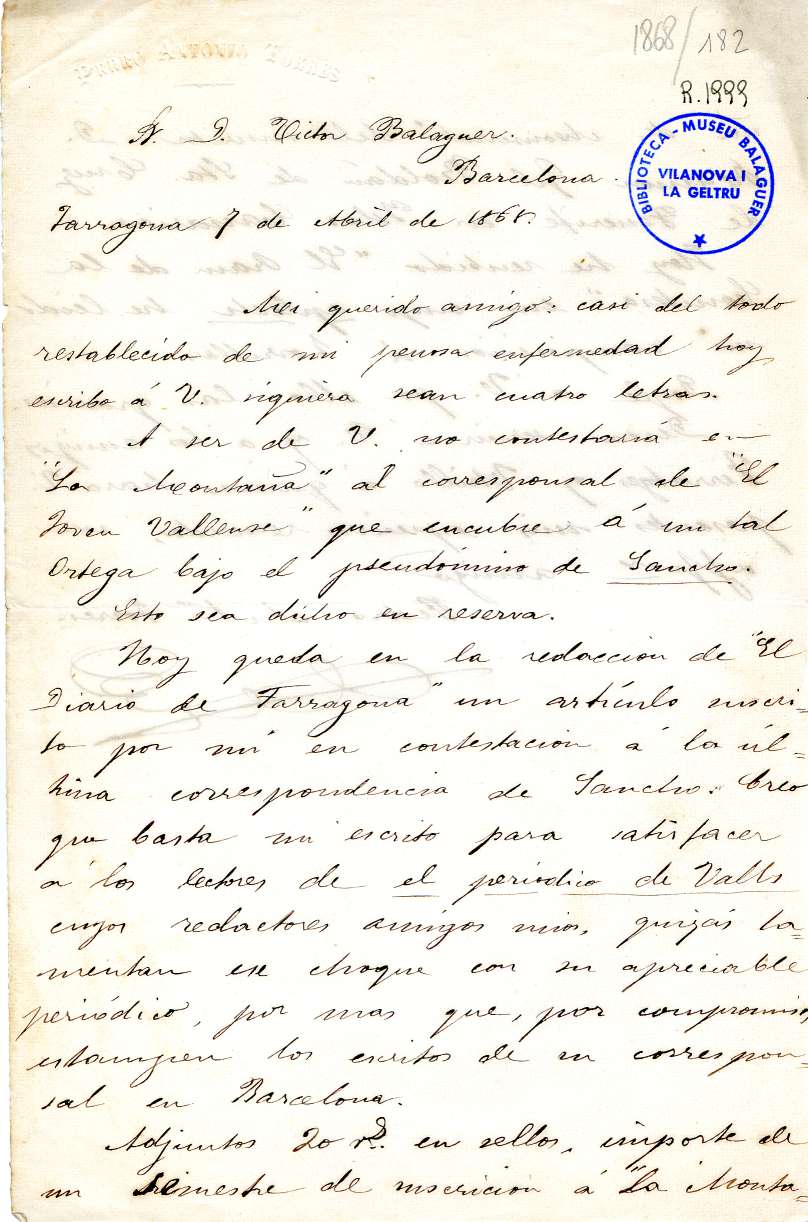 1868/182
R.1999
PEDRO ANTONIO TORRES
BIBLIOTECA - MUSEU BALAGUER
VILANOVA I
LA GELTRU
S. D. Victor Balaguer.
Barcelona.
Tarragona 7 de Abril de 1868.
Mi querido amigo: casi del todo
restablecido de mi penosa enfermedad hoy
escribo á V. siquiera sean cuatro letras.
A ser de V. no contestaria en
"La Montaña" al corresponsal de "El
Joven Vallense" que encubre á un tal
Ortega bajo el pseudómino de Sancho.
Esto sea dicho en reserva.
Hoy queda en la redaccion de "El
Diario de Tarragona" un artículo suscri=
to por mi en contestacion á la úl=
tima correspondencia de Sancho: Creo
que basta mi escrito para satisfacer
á los lectores de el periodico de Valls
cuyos redactores amigos mios, quizás la=
mentan ese choque con su apreciable
periódico, por mas que, por compromiso,
estampen los escritos de su correspon=
sal en Barcelona.
Adjuntos 20 rs. en sellos, importe de
un semestre de suscricion á "La Monta=